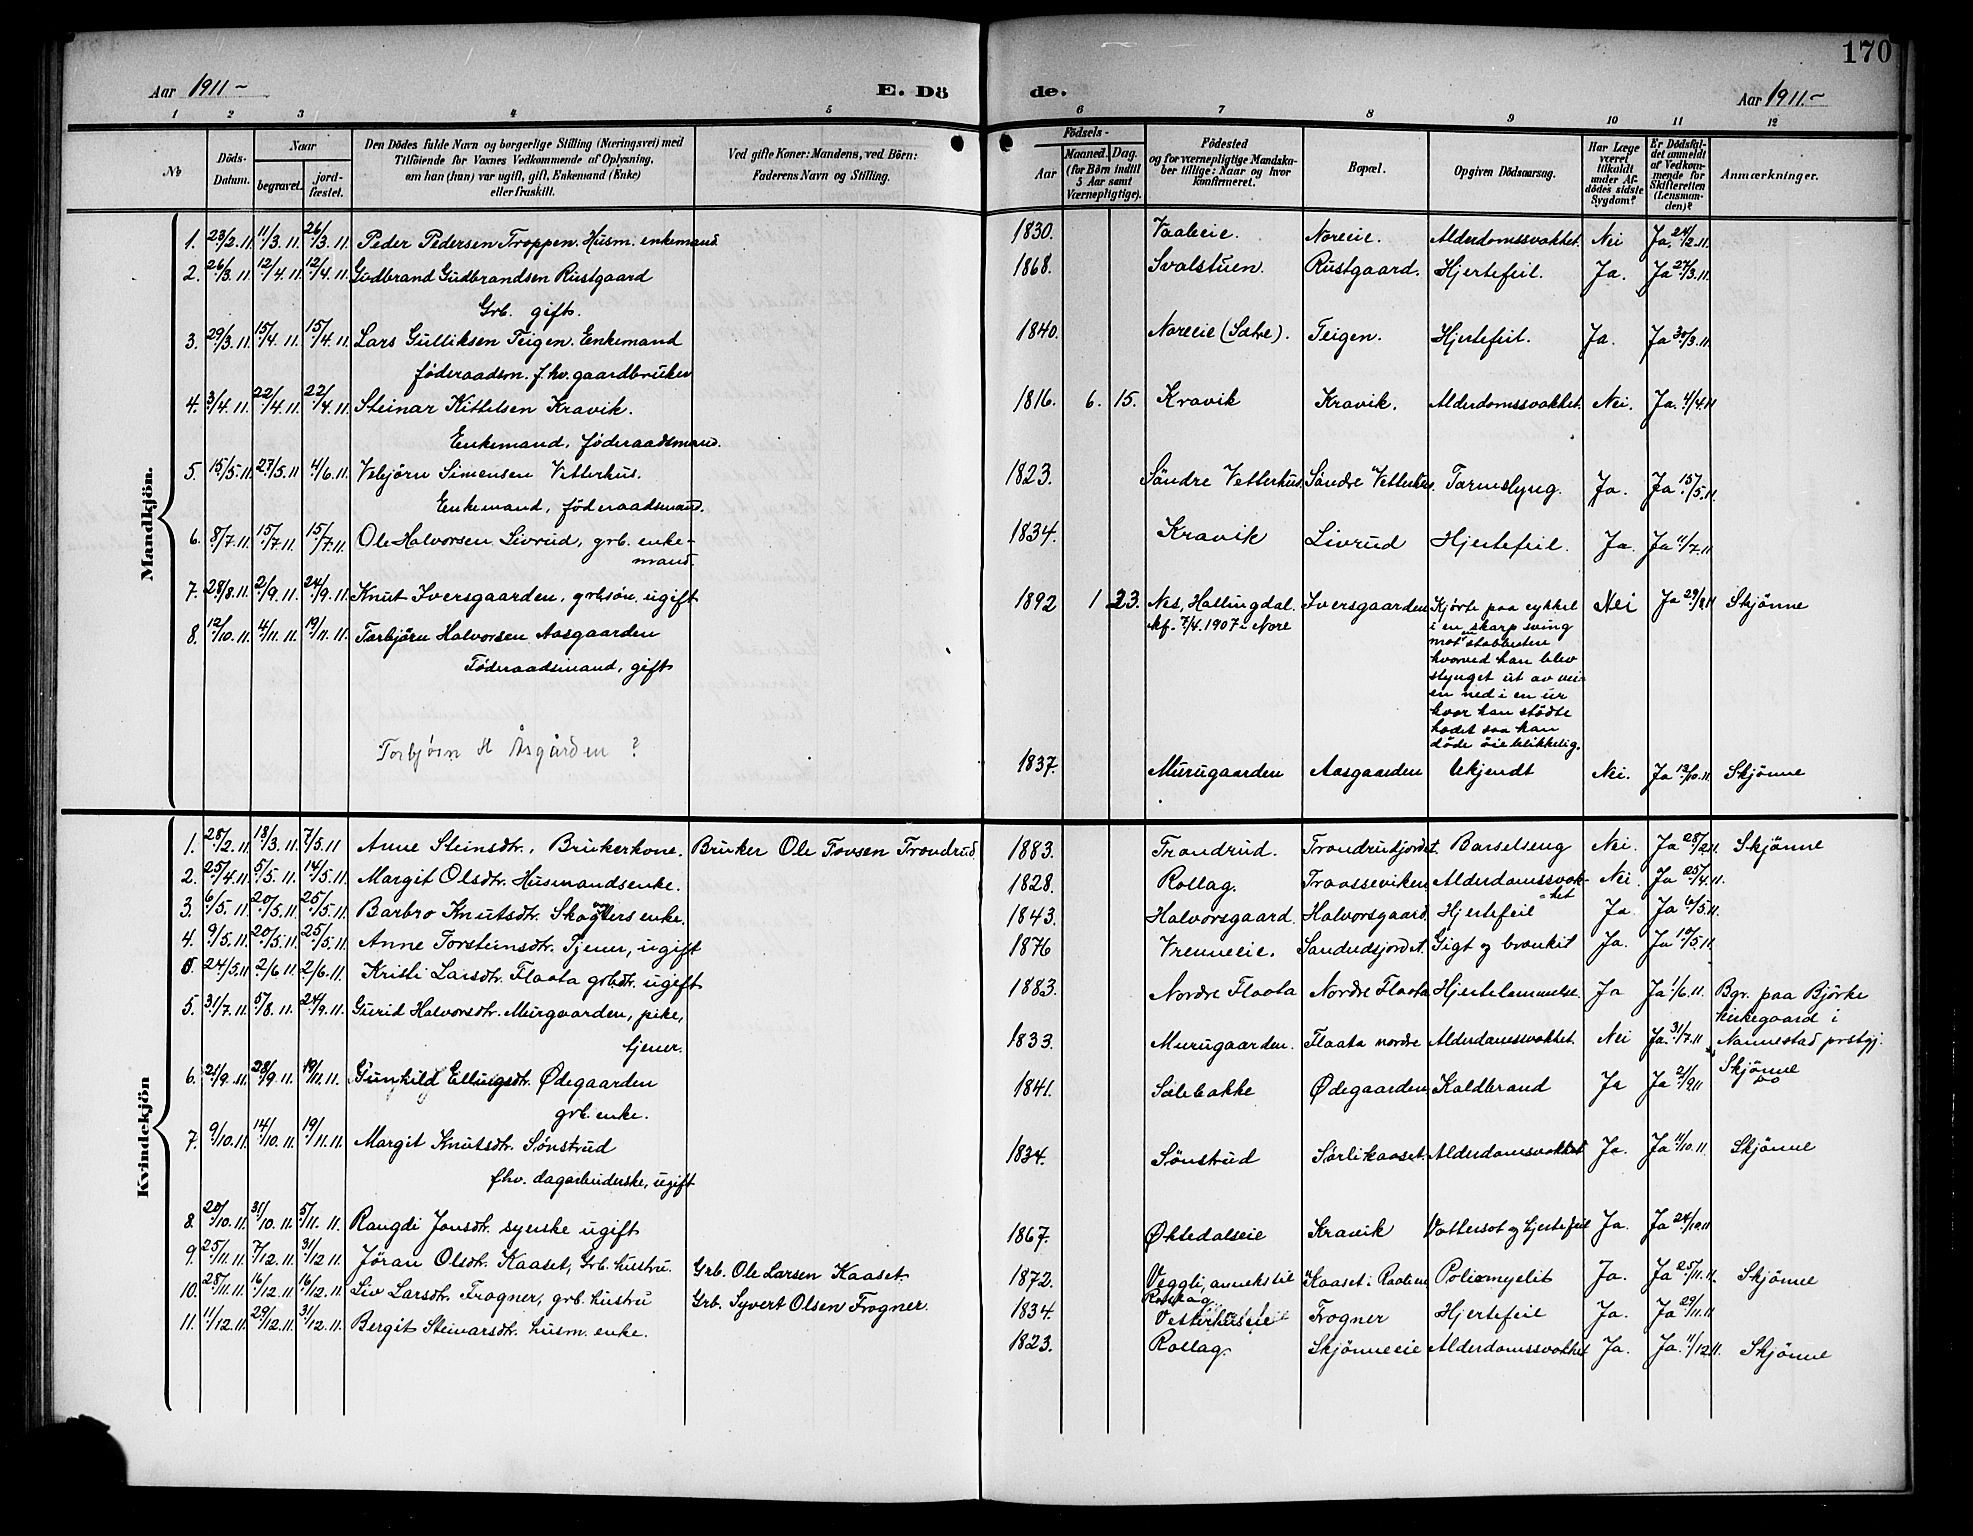 170
Aar 1911-
E. Dö
de.
Aar 1911.-
1 2 3 4 5
6 7 8 9 10 11 12
No
Döds-Datum.
Naar
begravet.
jord-fæstet.
Den Dödes fulde Navn og borgerlige Stilling (Næringsvei) med
Tilföiende for Voxnes Vedkommende af Oplysning,
om han (hun) var ugift, gift, Enkemand (Enke)
eller fraskilt.
Ved gifte Koner: Mandens, ved Börn:
Faderens Navn og Stilling.
Födsels-
Aar
Maaned. Dag.
(for Börn indtil
5 Aar samt
Værnepligtige).
Födested
og for værnepligtige Mandska-
ber tillige: Naar og hvor
konfirmeret.
Bopæl.
Opgiven Dödsaarsag.
Har Læge
været
tilkaldt
under Af-
dödes sidste
Sygdom?
Er Dödsfal-
det anmeldt
af Vedkom-
mende for
Skifteretten
(Lensman-
den)?
Anmærkninger.
Mandkjön.
1. 23/2.11 11/3.11 26/3.11 Peder Pedersen Troppen. Husm. enkemand 1830. Vaaleie. Noreie. Alderdomssvakhet. Nei Ja 24/2.11.
2. 26/3.11 12/4.11 12/4.11 Gudbrand Gudbrandsen Rustgaard 1868. Svalstuen. Rustgaard. Hjertefeil. Ja. Ja 27/3.11.
Grb. gift.
3. 29/3.11 15/4.11 15/4.11. Lars Gulliksen Teigen. Enkemand 1840. Noreeie (Sætre). Teigen. Hjertefeil. Ja. Ja 30/3.11.
føderaadsm. f.hv. gaardbruker
4. 3/4.11. 22/4.11. 22/4.11. Steinar Kittelsen Kravik. 1816. 6. 15. Kravik Kravik. Alderdomssvakhet. Nei. Ja. 4/4.11
Enkemand, føderaadsmand.
5. 15/5.11 27/5.11 4/6.11 Vebjörn Simensen Vetterhus. 1823. Söndre Vetterhus. Söndre Vetterhus. Tarmslyng. Ja. Ja 15/5.11.
Enkemand, föderaadsmand.
6. 8/7.11. 15/7.11. 15/7.11. Ole Halvorsen Livrud, grb. enke- 1834. Kravik Livrud Hjertefeil. Ja. Ja 11/7.11
mand.
7. 28/8.11. 2/9.11. 24/9.11. Knut Iversgaarden, grbsøn, ugift 1892 1 23. Nes, Hallingdal. Iversgaarden Kjörte paa cykkel Nei Ja 29/8.11 Skjönne
kf. 7/4.1907 i Nore
i en skarp sving
mot en stabbesten
hvorved han blev
slynget ut av vei-
en ned i en ur
hvor han stödte
hodet saa han
döde öieblikkelig.
8. 12/10.11. 4/11.11. 19/11.11. Torbjörn Halvorsen Aasgaarden 1837. Murugaarden Aasgaarden Ukjendt Nei. Ja 13/10.11. Skjönne
Föderaadsmand, gift
Torbjørn H Åsgården ?
Kvindekjön
1. 28/2.11. 18/3.11. 7/5.11 Anne Steinsdtr., Brukerkone. Bruker Ole Tovsen Trondrud. 1883. Trondrud. Trondrudjordet. Barselseng Nei. Ja 28/2.11. Skjönne
2. 25/4.11. 5/5.11. 14/5.11. Margit Olsdtr. Husmandsenke. 1828. Rollag. Traasseviken Alderdomssvak-het Nei. Ja 25/4.11.
3. 6/5.11 20/5.11 25/5.11. Barbro Knutsdtr. enke. 1843. Halvorsgaard. Halvorsgaard. Hjertefeil Ja Ja 6/5.11.
4. 9/5.11. 20/5.11. 25/5.11. Anne Torsteinsdtr. Tjener, ugift 1876 Vrenneeie. Gigt og bronkit Ja. Ja 10/5.11.
5. 24/5.11 2/6.11. 2/6.11. Kristi Larsdtr. Flaata grbdtr. ugift 1883. Nordre Flaata Nordre Flaata Hjertelammelse. Ja Ja 1/6.11. Bgr. paa Björke
kirkegaard i
Nannestad prstgj.
5. 31/7.11. 5/8.11. 24/9.11. Gurid Halvorsdtr. Murgaarden, pike, 1833. Murugaarden. Flaata nordre Alderdomssvakhet. Nei Ja 31/7.11 Skjönne
tjener.
6. 21/9.11. 28/9.11. 19/11.11. Gunhild Ellingsdtr. Ødegaarden 1841. Sælebakke Ødegaarden Koldbrand Ja Ja 21/9.11 do
grb. enke.
7. 9/10.11. 14/10.11. 19/11.11. Margit Knutsdtr. Sønstrud 1834. Sönstrud Sørlikaaset. Alderdomssvakhet Ja. Ja 11/10.11. Skjönne
fhv. dagarbeiderske, ugift
8. 20/10.11. 31/10.11. 5/11.11. Rangdi Jonsdtr. syerske ugift 1867. Øktedalseie Kravik Vattersot og hjertefeil Ja. Ja 24/10.11
9. 25/11.11. 7/12.11. 31/12.11. Jöran Olsdtr. Kaaset, Grb. hustru. Grb. Ole Larsen Kaaset. 1872. Veggli, anneks til Rollag Kaaset i Poliomyelit Ja. Ja 25/11.11. Skjönne
10. 28/11.11. 16/12.11. 16/12.11. Liv Larsdtr. Frogner, grb. hustru Grb. Syvert Olsen Frogner. 1834. Vetterhuseie Frogner Hjertefeil Ja. Ja 29/11.11.
11. 11/12.11. 29/12.11. 31/12.11. Bergit Steinarsdtr. husm. enke. 1823. Rollag. Skjönneeie Alderdomssvakhet Ja. Ja. 11/12.11. Skjönne